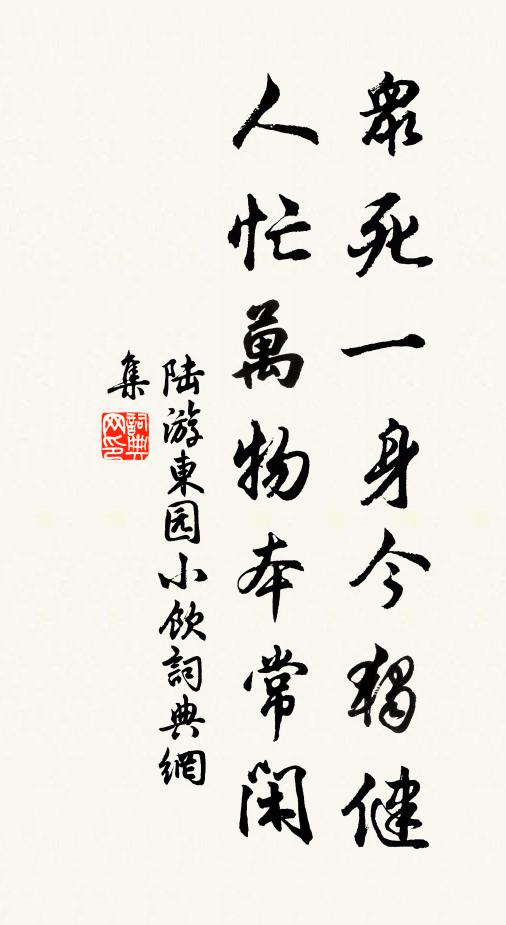 衆死一身今獨健
人忙萬物本常閑
陆游東园小飲詞典網
集
詞典网印